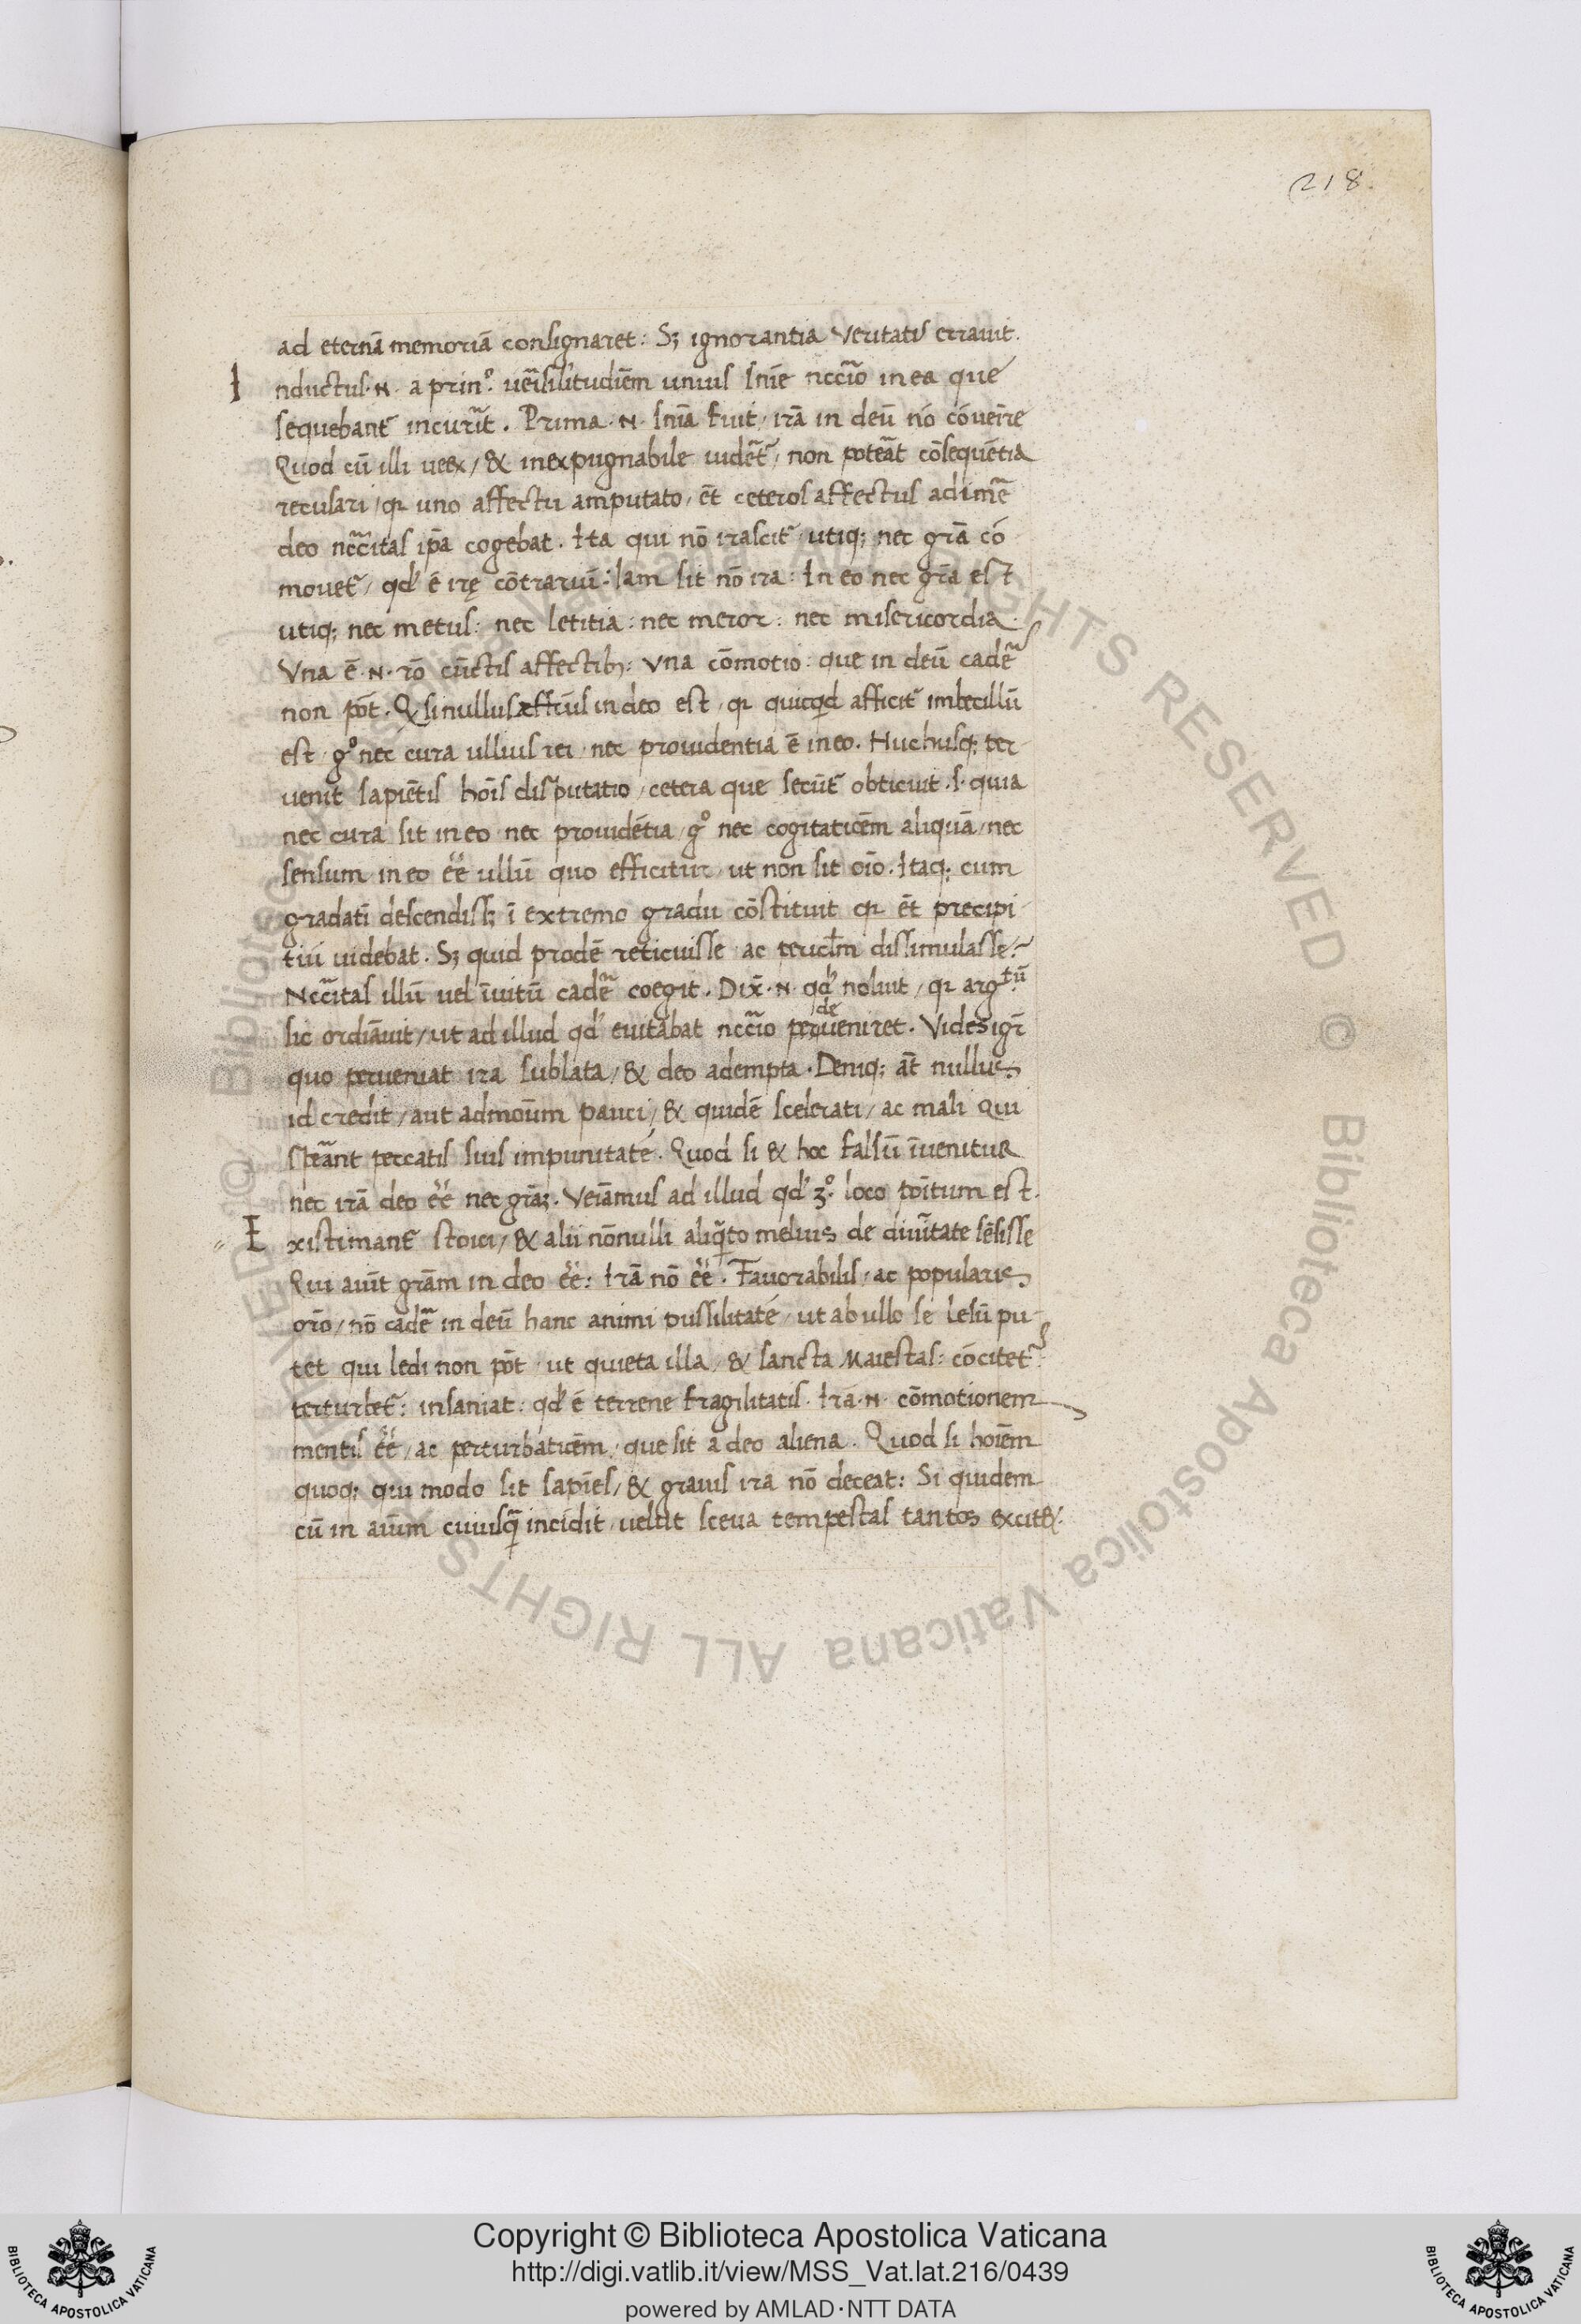 218.
ad eternã memoriã consignaret: Sʒ ignorantia veritatis erravit.
Inductus .N. a prinº. ueĩsilitudiẽm unius snĩe nccĩo in ea que
sequebant̃ incurĩt. Prima .N. snĩa fuit, irã in deũ nõ cõuenĩe
Quod cũ illi ueꝝ, & inexpugnabile uidẽt̃, non poteãt cõsequẽtia
recusari, qr uno affectu amputato, ẽt ceteros affectus adimẽ
deo nccĩtas ip̃a cogebat. Ita qui nõ irascit̃ utiq; nec grã cõ
mouet̃, qd' ẽ irę cõtrariũ: Iam sit nõ ira: In eo nec grã est
utiq; nec metus: nec letitia: nec meror: nec misericordia.
Vna ẽ .N. rõ cũctis affectib;: vna cõmotio: que in deũ cadẽ
non põt. Q' si nullus affctus in deo est, qr quicqd afficit̃ imbecillũ
est, gº nec cura ullius rei, nec prouidentia ẽ in eo. Huc husq; ꝑ
uenit sapiẽtis hoĩs disputatio, cetera que secũt̃ obticuit .s. quia
nec cura sit in eo nec prouidẽtia, gº nec cogitatioẽm aliquã, nec
sensum in eo eẽ ullũ quo efficitur, ut non sit oĩo. Itaq; cum
gradatĩ descendissʒ ĩ extremo gradu cõstituit qr ẽt precipi
tiũ uidebat. Sʒ quid prodẽ reticuisse ac ꝑiclm̃ dissimulasse?
Nccĩtas illũ uel ĩuitũ cadẽ coegit. Dix̃ .N. qd' noluit, qr argtũ
sic ordiãuit, ut ad illud qd' euitabat nccĩo ꝑueniret. Vides igr̃
de
quo ꝑueniat ira sublata, & deo adempta. Deniq; at̃ nullus
id credit, aut admoũm pauci, & quidẽ scelerati, ac mali qui
sꝑãnt peccatis suis impunitatẽ. Quod si & hoc falsũ ĩuenitur
nec irã deo eẽ nec grãʒ. Veiãmus ad illud qd' 3º. loco põitum est.
Existimant̃ stoici, & alii nõnulli aliqto melius de diuĩtate sẽsisse
Qui aiũt grãm in deo eẽ: Irã nõ eẽ. Fauorabilis, ac popularis
orõ, nõ cadẽ in deũ hanc animi pussilitatẽ, ut ab ullo se lesũ pu
tet qui ledi non põt, ut quieta illa, & sancta Maiestas: cõcitet̃:
ꝑturbet̃: insaniat: qd' ẽ terrene fragilitatis. Irã .N. cõmotionem
mentis eẽ, ac ꝑturbatioẽm, que sit a deo aliena. Quod si hoiẽm
quoq; qui modo sit sapiẽs, & grauis ira nõ deceat: Si quidem
cũ in aiũm cuiusq̃ incidit, uel'ut sceua tempestas tantos excit&
Copyright © Biblioteca Apostolica Vaticana
http://digi.vatlib.it/view/MSS_Vat.lat.216/0439
powered by AMLAD·NTT DATA
BIBLIOTECA APOSTOLICA VATICANA
BIBLIOTECA APOSTOLICA VATICANA
© Biblioteca Apostolica Vaticana ALL RIGHTS RESERVED © Biblioteca Apostolica Vaticana ALL RIGHTS RESERVED